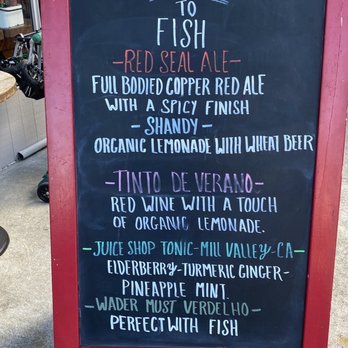 TO
FISH
-RED SEAL ALE-
FULL BODIED COPPER RED ALE
WITH A SPICY FINISH
-SHANDY-
ORGANIC LEMONADE WITH WHEAT BEER
-TINTO DE VERANO-
RED WINE WITH A TOUCH
OF ORGANIC LEMONADE.
-JUICE SHOP TONIC-MILL VALLEY-CA-
ELDERBERRY-TURMERIC GINGER-
PINEAPPLE MINT.
-WADER MUST VERDELHO-
PEREECT WITH FISH